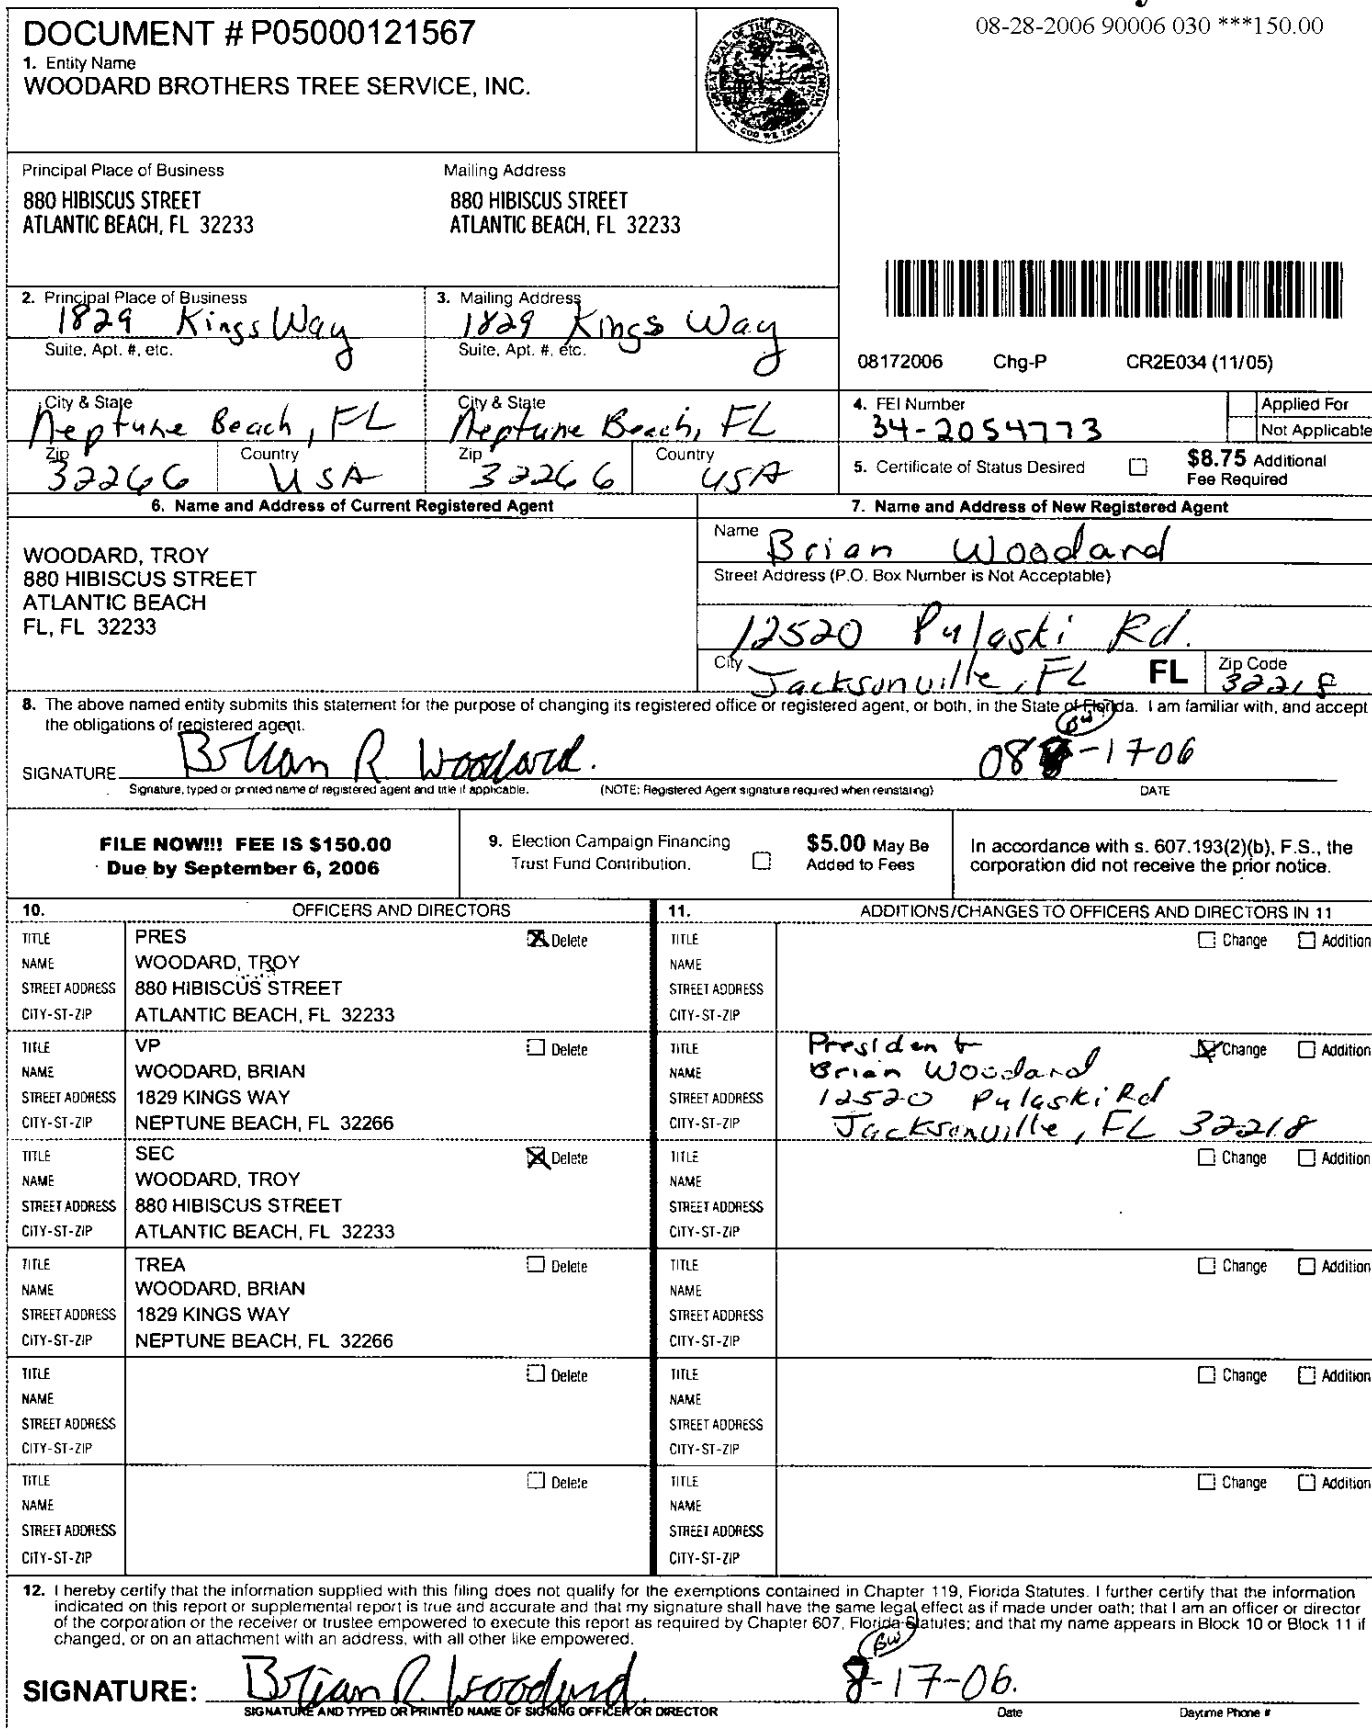 08-28-2006 90006 030 ***150.00
DOCUMENT # P05000121567
1. Entity Name
WOODARD BROTHERS TREE SERVICE, INC.
GREAT SEAL OF THE STATE OF FLORIDA
IN GOD WE TRUST
Principal Place of Business
880 HIBISCUS STREET
ATLANTIC BEACH, FL 32233
Mailing Address
880 HIBISCUS STREET
ATLANTIC BEACH, FL 32233
2. Principal Place of Business
1829 Kings Way
Suite, Apt. #, etc.
City & State
Neptune Beach, FL
Zip
32266
Country
USA
3. Mailing Address
1829 Kings Way
Suite, Apt. #, etc.
City & State
Neptune Beach, FL
Zip
32266
Country
USA
08172006 Chg-P CR2E034 (11/05)
4. FEI Number
34-2054773
Applied For
Not Applicable
5. Certificate of Status Desired
$8.75 Additional
Fee Required
6. Name and Address of Current Registered Agent
WOODARD, TROY
880 HIBISCUS STREET
ATLANTIC BEACH
FL, FL 32233
7. Name and Address of New Registered Agent
Name Brian Woodard
Street Address (P.O. Box Number is Not Acceptable)
12520 Pulaski Rd.
City Jacksonville, FL FL
Zip Code
32218
8. The above named entity submits this statement for the purpose of changing its registered office or registered agent, or both, in the State of Florida. I am familiar with, and accept
the obligations of registered agent.
BW
SIGNATURE Brian R Woodard. 08-1706
Signature, typed or printed name of registered agent and title if applicable. (NOTE: Registered Agent signature required when reinstating) DATE
FILE NOW!!! FEE IS $150.00
Due by September 6, 2006
9. Election Campaign Financing
Trust Fund Contribution.
$5.00 May Be
Added to Fees
In accordance with s. 607.193(2)(b), F.S., the
corporation did not receive the prior notice.
10. OFFICERS AND DIRECTORS
11. ADDITIONS/CHANGES TO OFFICERS AND DIRECTORS IN 11
TITLE PRES Delete
NAME WOODARD, TROY
STREET ADDRESS 880 HIBISCUS STREET
CITY-ST-ZIP ATLANTIC BEACH, FL 32233
TITLE Change Addition
NAME
STREET ADDRESS
CITY-ST-ZIP
TITLE VP Delete
NAME WOODARD, BRIAN
STREET ADDRESS 1829 KINGS WAY
CITY-ST-ZIP NEPTUNE BEACH, FL 32266
TITLE President Change Addition
NAME Brian Woodard
STREET ADDRESS 12520 Pulaski Rd
CITY-ST-ZIP Jacksonville, FL 32218
TITLE SEC Delete
NAME WOODARD, TROY
STREET ADDRESS 880 HIBISCUS STREET
CITY-ST-ZIP ATLANTIC BEACH, FL 32233
TITLE Change Addition
NAME
STREET ADDRESS
CITY-ST-ZIP
TITLE TREA Delete
NAME WOODARD, BRIAN
STREET ADDRESS 1829 KINGS WAY
CITY-ST-ZIP NEPTUNE BEACH, FL 32266
TITLE Change Addition
NAME
STREET ADDRESS
CITY-ST-ZIP
TITLE Delete
NAME
STREET ADDRESS
CITY-ST-ZIP
TITLE Change Addition
NAME
STREET ADDRESS
CITY-ST-ZIP
TITLE Delete
NAME
STREET ADDRESS
CITY-ST-ZIP
TITLE Change Addition
NAME
STREET ADDRESS
CITY-ST-ZIP
12. I hereby certify that the information supplied with this filing does not qualify for the exemptions contained in Chapter 119, Florida Statutes. I further certify that the information
indicated on this report or supplemental report is true and accurate and that my signature shall have the same legal effect as if made under oath; that I am an officer or director
of the corporation or the receiver or trustee empowered to execute this report as required by Chapter 607, Florida Statutes; and that my name appears in Block 10 or Block 11 if
changed, or on an attachment with an address, with all other like empowered.
BW
SIGNATURE: Brian R. Woodard. 8-17-06.
SIGNATURE AND TYPED OR PRINTED NAME OF SIGNING OFFICER OR DIRECTOR Date Daytime Phone #